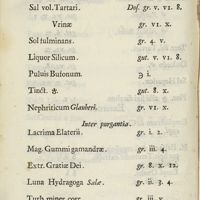 Sal vol. Tartari. Dos. gr. v. vi. 8.
Vrinæ gr. vi. x.
Sol fulminans. gr. 4. v.
Liquor Silicum. gut. v. vi. 8.
Puluis Bufonum. ℈ i.
Tinct. ♁. gut. 8. x.
Nephriticum Glauberi. gr. vi. x.
Inter purgantia.
Lacrima Elaterii. gr. i. 2.
Mag. Gummi gamandræ. gr. iii. 4.
Extr. Gratiæ Dei. gr. 8. x. 12.
Luna Hydragoga Salæ. gr. ii. 3. 4.
Turb. miner. corr. gr. iii. v.